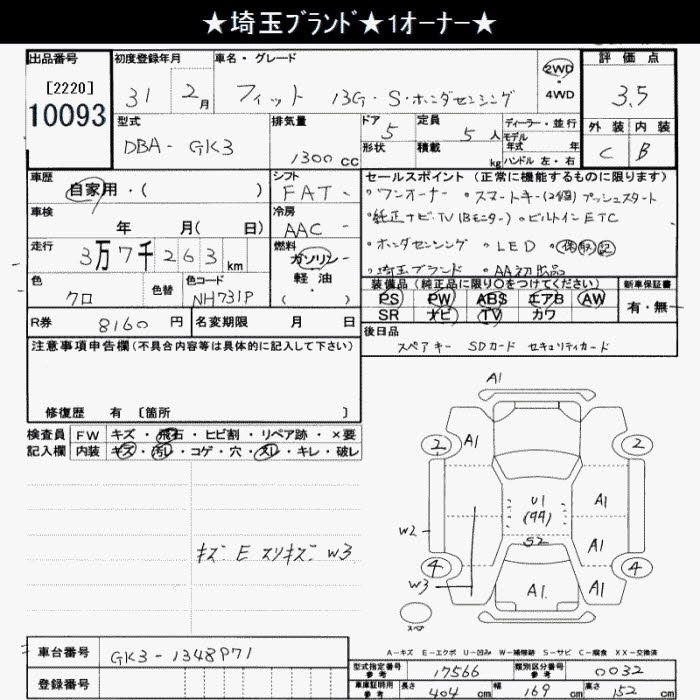 ★埼玉ブランド★1オーナー★
出品番号 初度登録年月 車名・グレード 2WD 4WD 評価点
[2220]
10093
31 2月 フィット 13G・S・ホンダセンシング 3.5
型式 排気量 ドア 定員 ディーラー・並行 外装 内装
DBA- GK3 1300cc 5 5人 モデル年式 年 C B
形状 積載 kg ハンドル 左・右
車歴 シフト セールスポイント(正常に機能するものに限ります)
自家用・( ) FAT-
・ワンオーナー ・スマートキー(2個) プッシュスタート
車検 冷房
年 月( 日) AAC-
・純正ナビTV(Bモニター) ・ビルトインETC
走行 燃料
3万7千263km ガソリン・軽油・( )
・ホンダセンシング ・LED ・保取記
・埼玉ブランド ・AA初出品
色 色替 色コード
クロ NH731P
装備品(純正品に限り○をつけてください) 新車保証書
PS PW ABS エアB AW 有・無
SR ナビ TV カワ
R券 8160円 名変期限 月 日
後日品
スペアキー SDカード セキュリティカード
注意事項申告欄(不具合内容等は具体的に記入して下さい)
修復歴 有 〔箇所 〕
検査員 FW キズ・飛石・ヒビ割・リペア跡・×要
記入欄 内装 キズ・汚レ・コゲ・穴・スレ・キレ・破レ
キズ E スリキズ W3
A1
2 A1 2
U1 A1
(44)
W2 S2 A1
4 W3 A1 A1 4
スペア
A-キズ E-エクボ U-凹み W-補修跡 S-サビ C-腐食 XX-交換済
車台番号 GK3-1348971
型式指定番号 参考 17566 類別区分番号 参考 0032
登録番号
車庫証明用 参考 長さ 404cm 幅 169cm 高さ 152cm